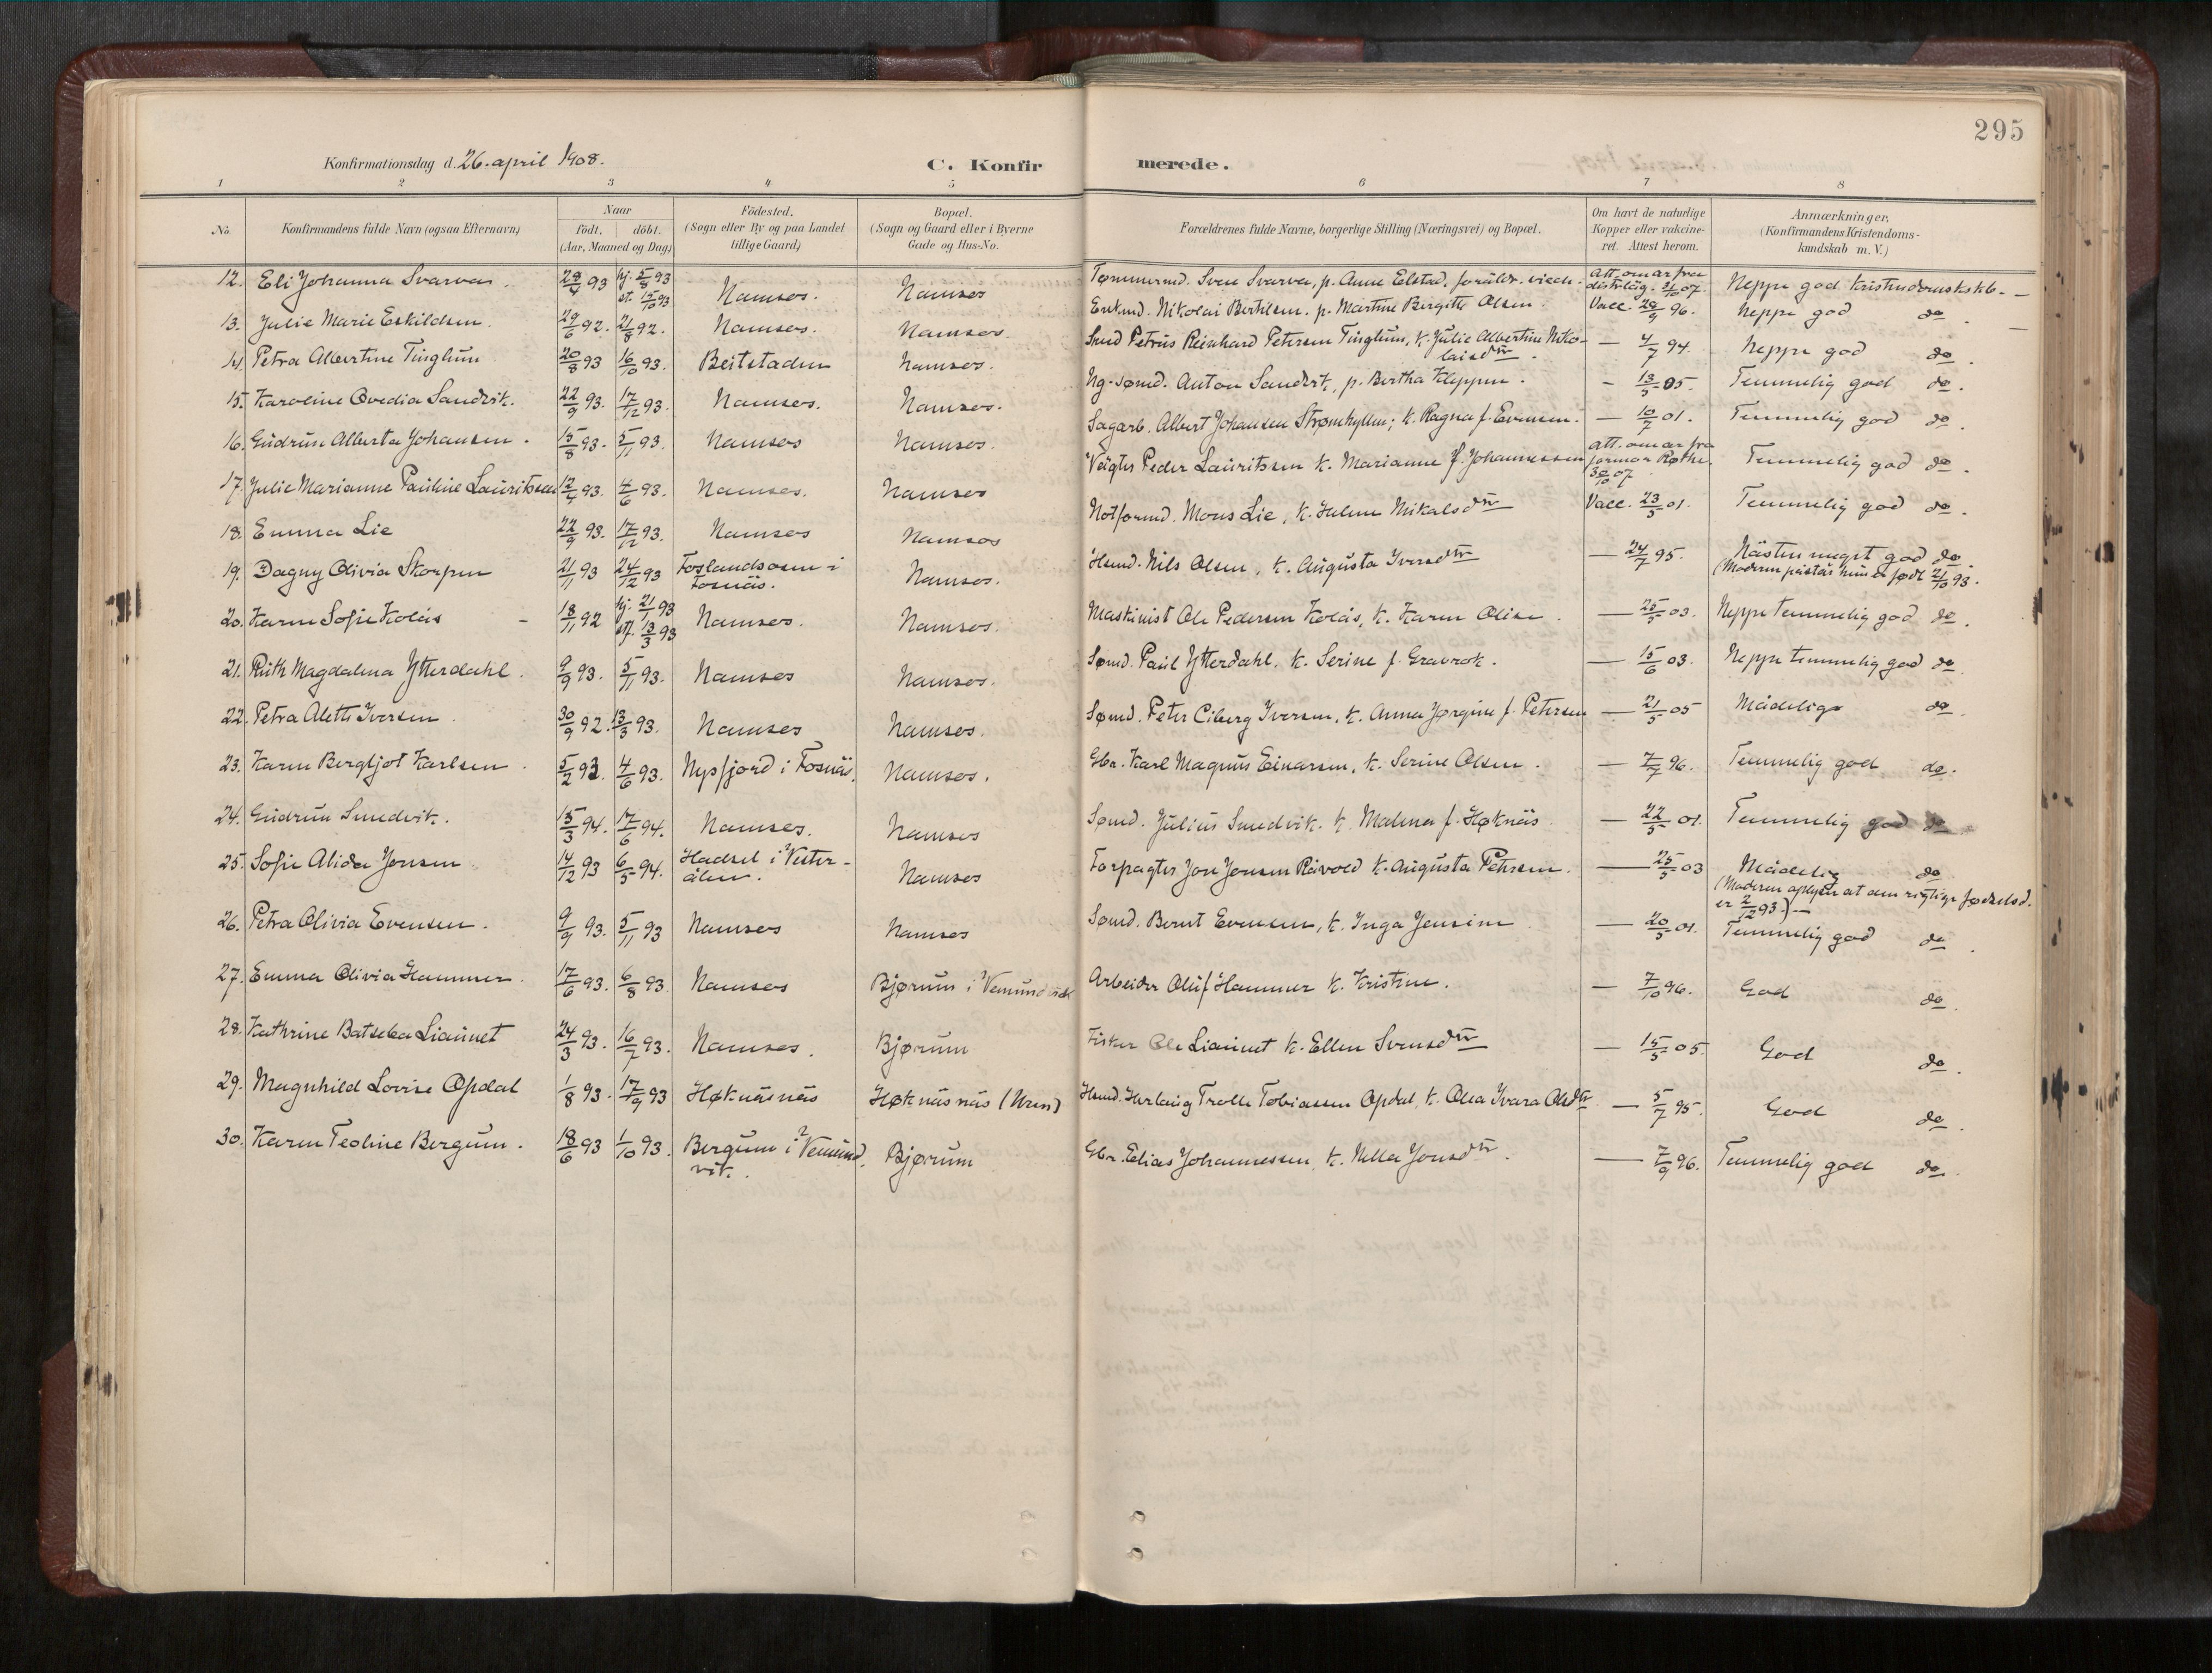 295
Konfirmationsdag d. 26. april 1908.
C. Konfir merede.
1 2 3 4 5 6 7 8
No. Konfirmandens fulde Navn (ogsaa Efternavn) Naar født. døbt. (Aar, Maaned og Dag) Fødested. (Sogn eller By og paa Landet tillige Gaard) Bopæl. (Sogn og Gaard eller i Byerne Gade og Hus-No. Forældrenes fulde Navne, borgerlige Stilling (Næringsvei) og Bopæl. Om havt de naturlige Kopper eller vakcineret. Attest herom. Anmærkninger, (Konfirmandens Kristendomskundskab m. V.)
12. Eli Johanna Svarva 28/4 93 hj. 5/8 93 st. 15/10 93 Namsos. Namsos Tømmermd. Sven Svarva, p. Anne Elstad, Att. om ar fra distrläg. 21/10 07. Neppe god Kristendomskskb. -
13. Julie Marie Eskildsen. 29/6 92. 21/8 92. Namsos. Namsos. Enkmd. Nikolai Bertilsen. p. Martine Birgitte Olsen. Vacc. 28/9 96. Neppe god do
14. Petra Albertine Tinghun 20/8 93 16/10 93. Beitstaden Namsos. Smed Petrus Reinhard Petersen Tinghun, k. Julie Albertine Nikolaisdtr — 4/7 94. Neppe god do.
15. Karoline Ovedia Sandvik. 22/9 93. 17/12 93. Namsos. Namsos. Ug. sømd. Anton Sandvik, p. Bertha Kleppen. - 13/5 05. Temmelig god do.
16. Gudrun Alberta Johansen. 15/8 93. 5/11 93. Namsos Namsos. Sagarb. Albert Johansen Strømhyllen; k. Ragna f. Evensen. — 10/7 01. Temmelig god do.
17. Julie Marianne Pauline Lauritssen 12/4 93. 4/6 93. Namsos. Namsos Vägter Peder Lauritssen k. Marianne f. Johannessen Att. om ar fra jormor Røthe. 30/10 07 Temmelig god do.
18. Emma Lie 22/9 93. 17/12 93. Namsos Namsos Notformd. Mons Lie, k. Helene Mikalsdtr Vacc. 23/5 01. Temmelig god do.
19. Dagny Olivia Skorpen 21/11 93 24/12 93 Foslandsosen i Fosnäs. Namsos. Husmd. Nils Olsen, k. Augusta Iversdtr — 24/7 95. Nästen meget god do. (Moderen påstår hun er født 21/10 93.
20. Karen Sofie Kolås 18/11 92 hj. 21/1 93 stf. 13/3 93 Namsos. Namsos. Maskinist Ole Pedersen Kolås, k. Karen Oline. — 25/5 03. Neppe temmelig god do.
21. Ruth Magdalena Ytterdahl. 9/9 93. 5/11 93. Namsos Namsos. Sømd. Paul Ytterdahl, k. Serine f. Gravrok. — 15/6 03. Neppe temmelig god do
22. Petra Alette Iversen 30/9 92. 13/3 93. Namsos Namsos. Sømd. Peter Ciberg Iversen, k. Anna Jørgine f. Petersen — 21/5 05 Mådelig do
23. Karen Bergljot Karlsen. 5/2 93. 4/6 93. Nypfjord i Fosnäs. Namsos. Gbr. Karl Magnus Einarsen, k. Serine Olsen. — 7/7 96. Temmelig god do.
24. Gudrun Smedvik. 15/3 94. 17/6 94. Namsos. Namsos Sømd. Julius Smedvik. k. Malena f. Høknäs — 22/5 01. Temmelig god do
25. Sofie Alida Jensen 14/12 93 6/5 94. Hadsel i Vesterålen. Namsos Forpagter Jon Jensen Råvold k. Augusta Petersen. — 25/5 03 Mådelig do (Moderen oplyser at den rigtige fødselsd. er 2/12 93.) —
26. Petra Olivia Evensen. 9/9 93. 5/11 93 Namsos Namsos Sømd. Bernt Evensen, k. Inga Jensine — 20/5 01. Temmelig god do.
27. Emma Olivia Hammer. 17/6 93. 6/8 93. Namsos Bjørum i Vemundvik Arbeider Oluf Hammer k. Kristine. — 7/10 96. God do.
28. Kathrine Batseba Liaunet 24/3 93. 16/7 93. Namsos. Bjørum Fisker Ole Liaunet k. Ellen Svensdtr — 15/5 05. God do.
29. Magnhild Lovise Opdal 1/8 93. 17/9 93 Høknäsnäs Høknäsnäs (Uren) Husmd. Herlaug Trolle Tobiassen Opdal, k. Olea Ivara Olsdtr — 5/7 95. God do.
30. Karen Teoline Bergum. 18/6 93 1/10 93. Bergum i Vemundvik. Bjørum Gbr. Elias Johannessen, k. Mella Jonsdtr. — 7/9 96. Temmelig god do.